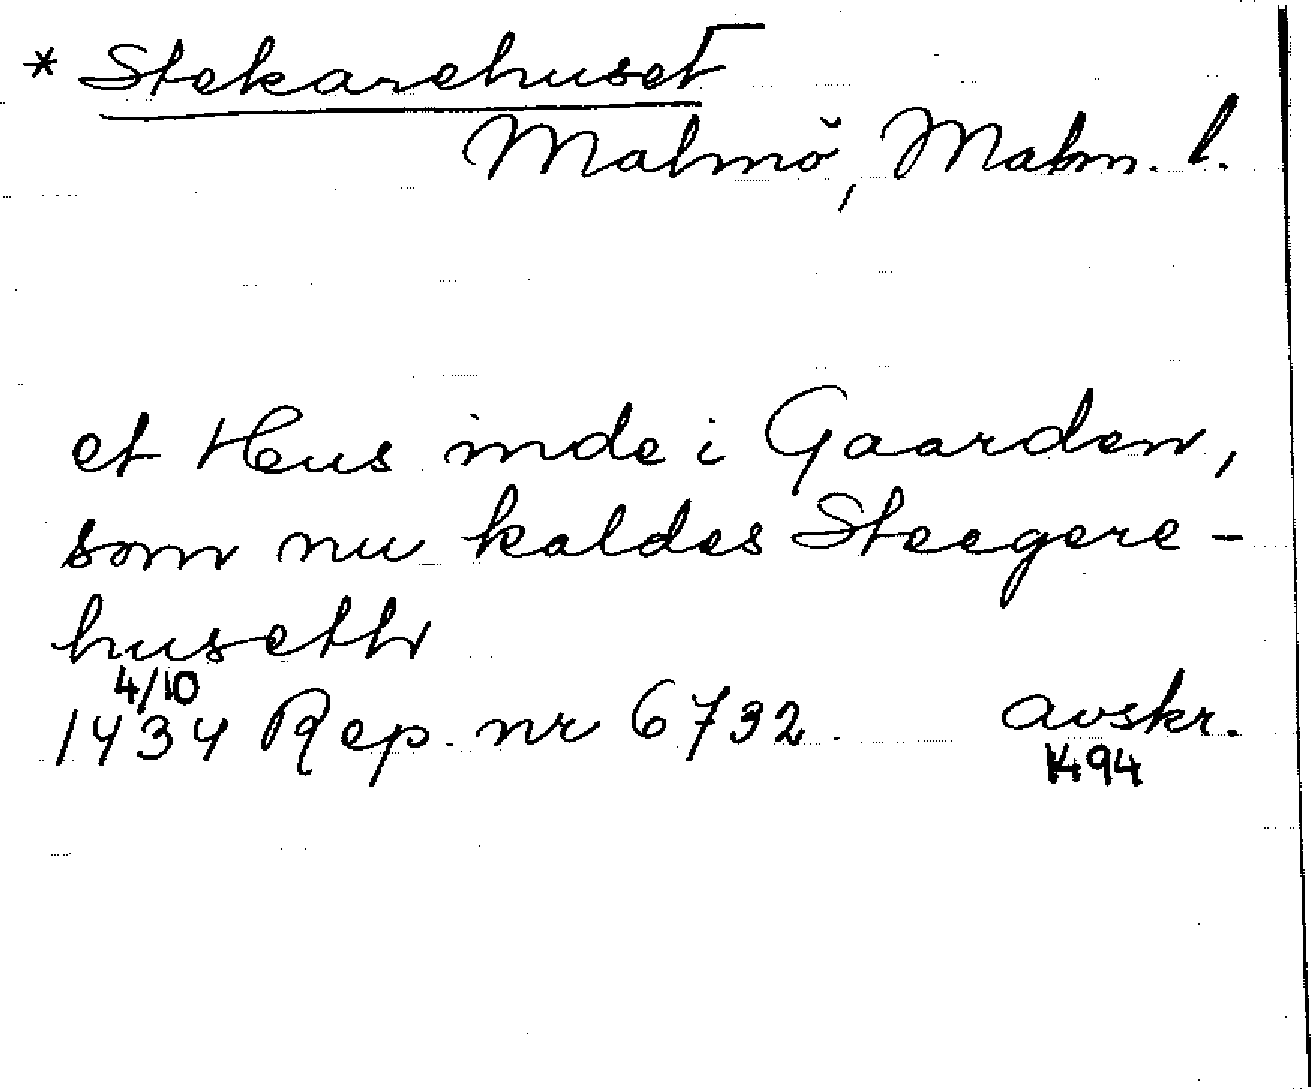 * Stekarehuset
Malmö, Malm. l.
et Hus inde i Gaarden,
som nu kaldes Steegere-
huseth
4/10
1434 Rep. nr 6732 avskr.
1494